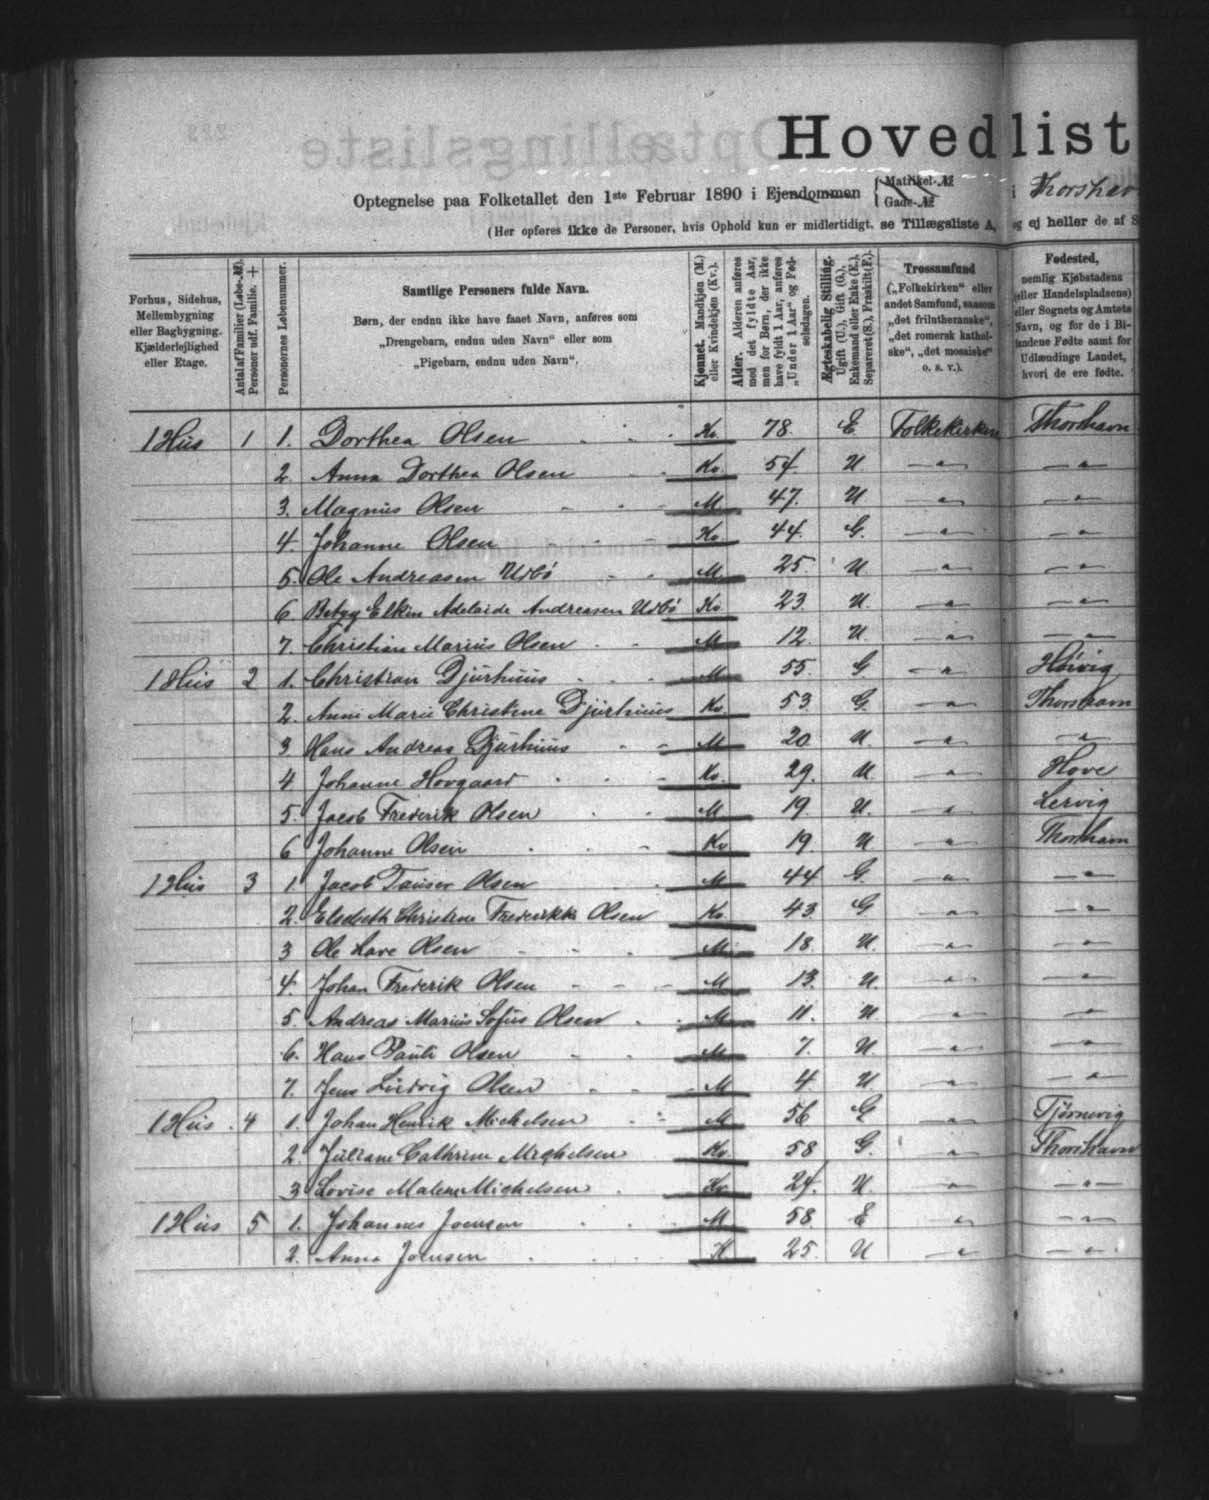 Hovedlist
Optegnelse paa Folketallet den 1ste Februar 1890 i Ejendommen { Matrikel-№ Gade-№ i Thorshav
(Her opføres ikke de Personer, hvis Ophold kun er midlertidigt, se Tillægsliste A, og ej heller de af S
Forhus, Sidehus, Mellembygning eller Bagbygning. Kjælderlejlighed eller Etage.
Antal af Familier (Løbe-№). Personer udf. Familie. +
Personernes Løbenummer.
Samtlige Personers fulde Navn.
Børn, der endnu ikke have faaet Navn, anføres som „Drengebarn, endnu uden Navn“ eller som „Pigebarn, endnu uden Navn“.
Kjønnet. Mandkjøn (M.) eller Kvindekjøn (Kv.).
Alder. Alderen anføres med det fyldte Aar, men for Børn, der ikke have fyldt 1 Aar, anføres „Under 1 Aar“ og Fødselsdagen.
Ægteskabelig Stilling. Ugift (U.), Gift (G.), Enkemand eller Enke (E.), Separeret (S.), Fraskilt (F.).
Trossamfund („Folkekirken“ eller andet Samfund, saasom „det frilutheranske“, „det romersk katholske“, „det mosaiske“ o. s. v.).
Fødested, nemlig Kjøbstadens (eller Handelspladsens) eller Sognets og Amtets Navn, og for de i Bilandene Fødte samt for Udlændinge Landet, hvori de ere fødte.
1 Hus 1 1. Dorthea Olsen Kv. 78. E. Folkekirken Thorshavn
2. Anna Dorthea Olsen Kv. 54. U — " — — " —
3. Magnus Olsen M. 47. U — " — — " —
4. Johanne Olsen Kv. 44. G. — " — — " —
5. Ole Andreasen Udbö M. 25. U — " — — " —
6 Elkin Adelaide Andreasen Udbö Kv 23. U. — " — — " —
7. Christian Marius Olsen M 12. U. — " — — " —
1 Hus 2 1. Christian Djurhuus M 55. G — " — Hoivig
2. Anne Marie Christine Djurhuus Kv. 53 G. — " — Thorshavn
3 Hans Andreas Djurhuus M 20 U. — " — — " —
4 Johanne Hovgaard Kv. 29. U — " — Hove
5. Jacob Frederik Olsen M 19. U. — " — Lervig
6 Johanne Olsen Kv 19. U — " — Thorshavn
1 Hus 3 1 Jacob Olsen M 44 G. — " — — " —
2. Elsebeth Christine Frederikke Olsen Kv. 43. G — " — — " —
3 Ole Olsen M 18. U. — " — — " —
4. Johan Frederik Olsen M 13. U. — " — — " —
5. Andreas Marius Sofus Olsen M 11. U — " — — " —
6. Hans Pauli Olsen M 7. U. — " — — " —
7. Jens Ludvig Olsen M 4 U — " — — " —
1 Hus. 4 1. Johan Henrik Michelsen M 56 G — " — Tjörnevig
2. Juliane Cathrine Michelsen Kv. 58 G. — " — Thorshavn
3 Lovise Malene Michelsen Kv. 24. U. — " — — " —
1 Hus 5 1. Johannes Joensen M 58. E — " — — " —
2. Anna Joensen K 25. U — " — — " —